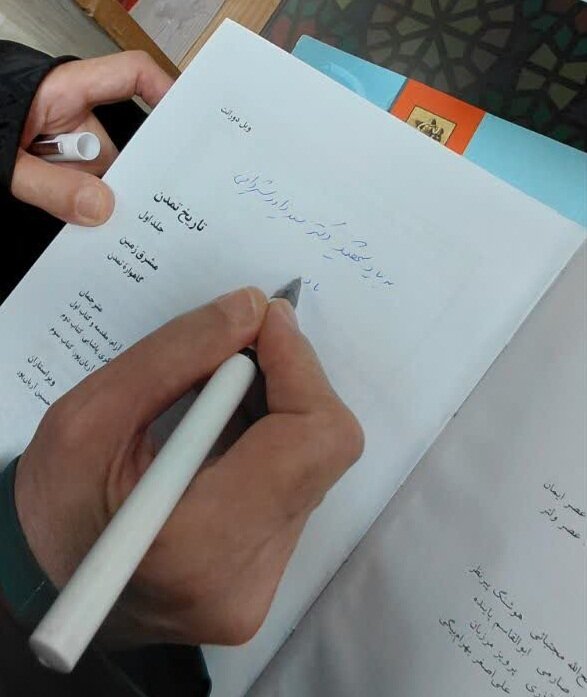 ویل دورانت
به یاد
دکتر سید
با
تاریخ تمدن
جلد اول
مشرق زمین
گاهوارهٔ تمدن
مترجمان
آرام، مقدمه و کتاب اول
پاشایی کتاب دوم
آریان‌پور، کتاب سوم
ویراستاران
حسین آریان‌پور
عصر ایمان
عصر ولتر
مجتبائی هوشنگ پیرنظر
صارمی ابوالقاسم پاینده
پرویز مرزبان
علی‌اصغر بهرام‌بیگی